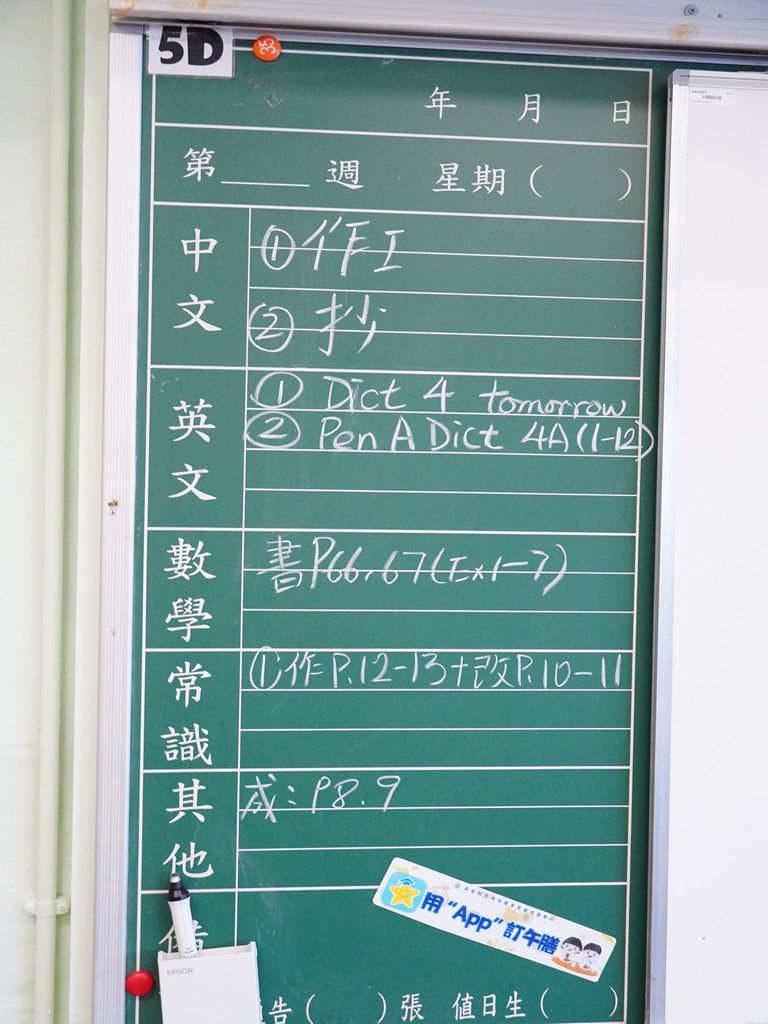 5D
35
年 月 日
第____週 星期( )
中文
①作工
②抄
英文
① Dict 4 tomorrow
② Pen A Dict 4A(1-12)
數學
書P66,67(Ex1-7)
常識
①作P.12-13+改P.10-11
其他
成:P8.9
用“App”訂午膳
備
EPSON
告( )張 值日生( )